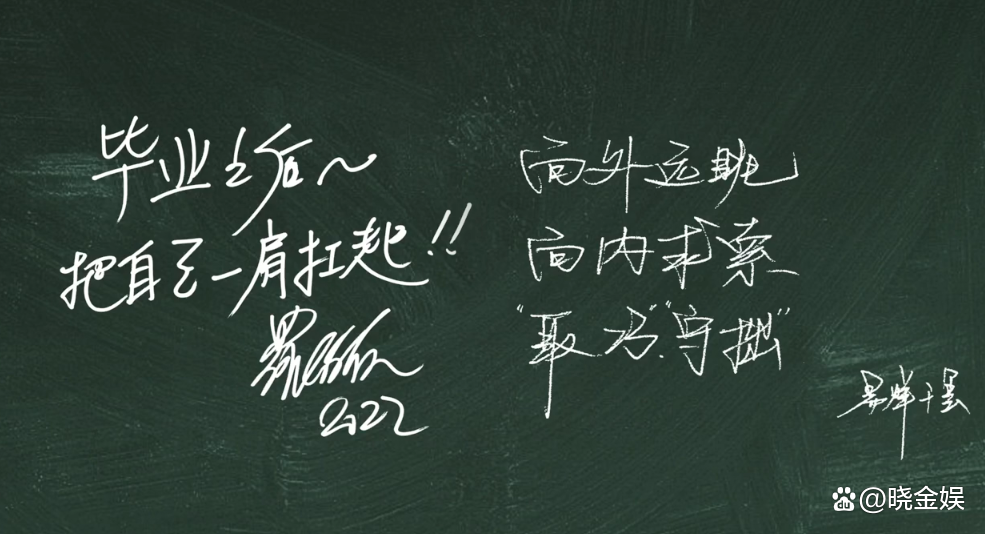 毕业之后~
把自己一肩扛起!!
2022
向外远眺
向内求索
“取 ”“守拙”
易烊千玺
@晓金娱